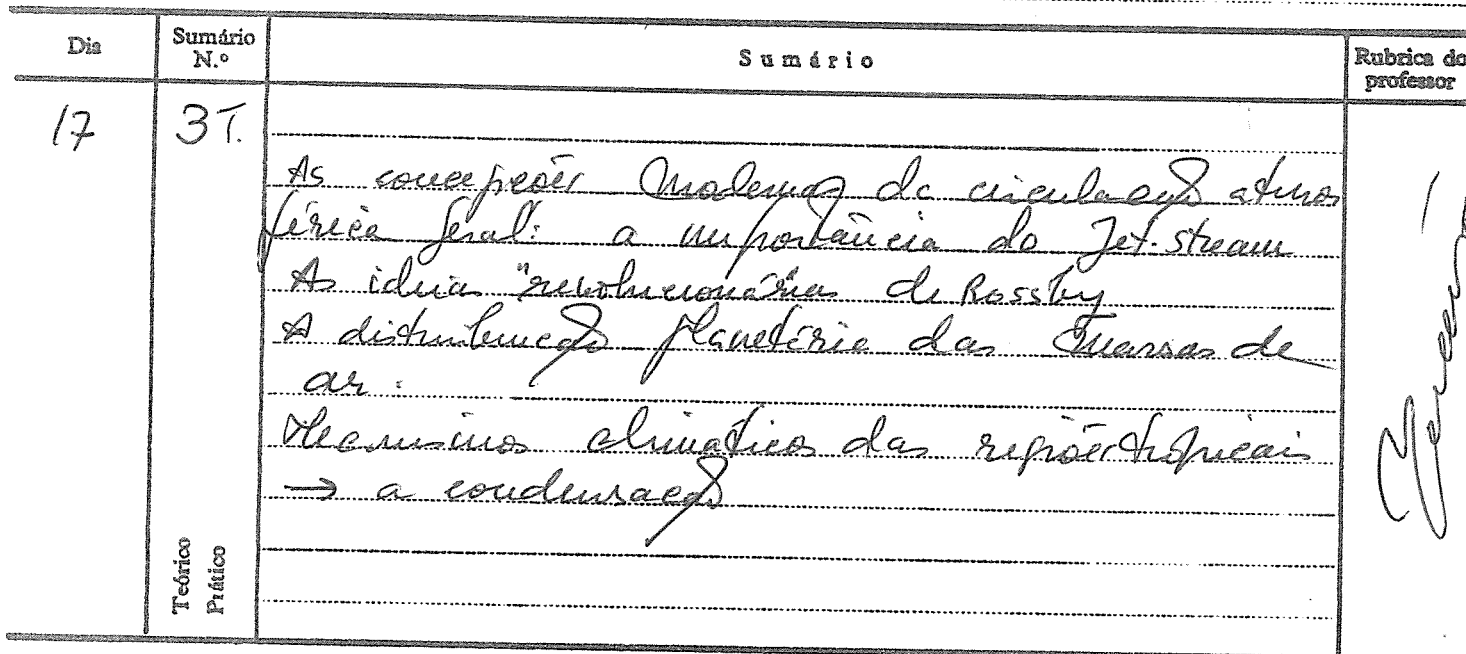 Dia
Sumário N.º
Sumário
Rubrica do professor
17
3T.
As concepções modernas da circulação atmos
férica geral: a importância do Jet-stream
As ideias "revolucionárias de Rossby
A distribuição planetária das massas de
ar.
Mecanismos climáticos das regiões tropicais
→ a condensação
Teórico
Prático